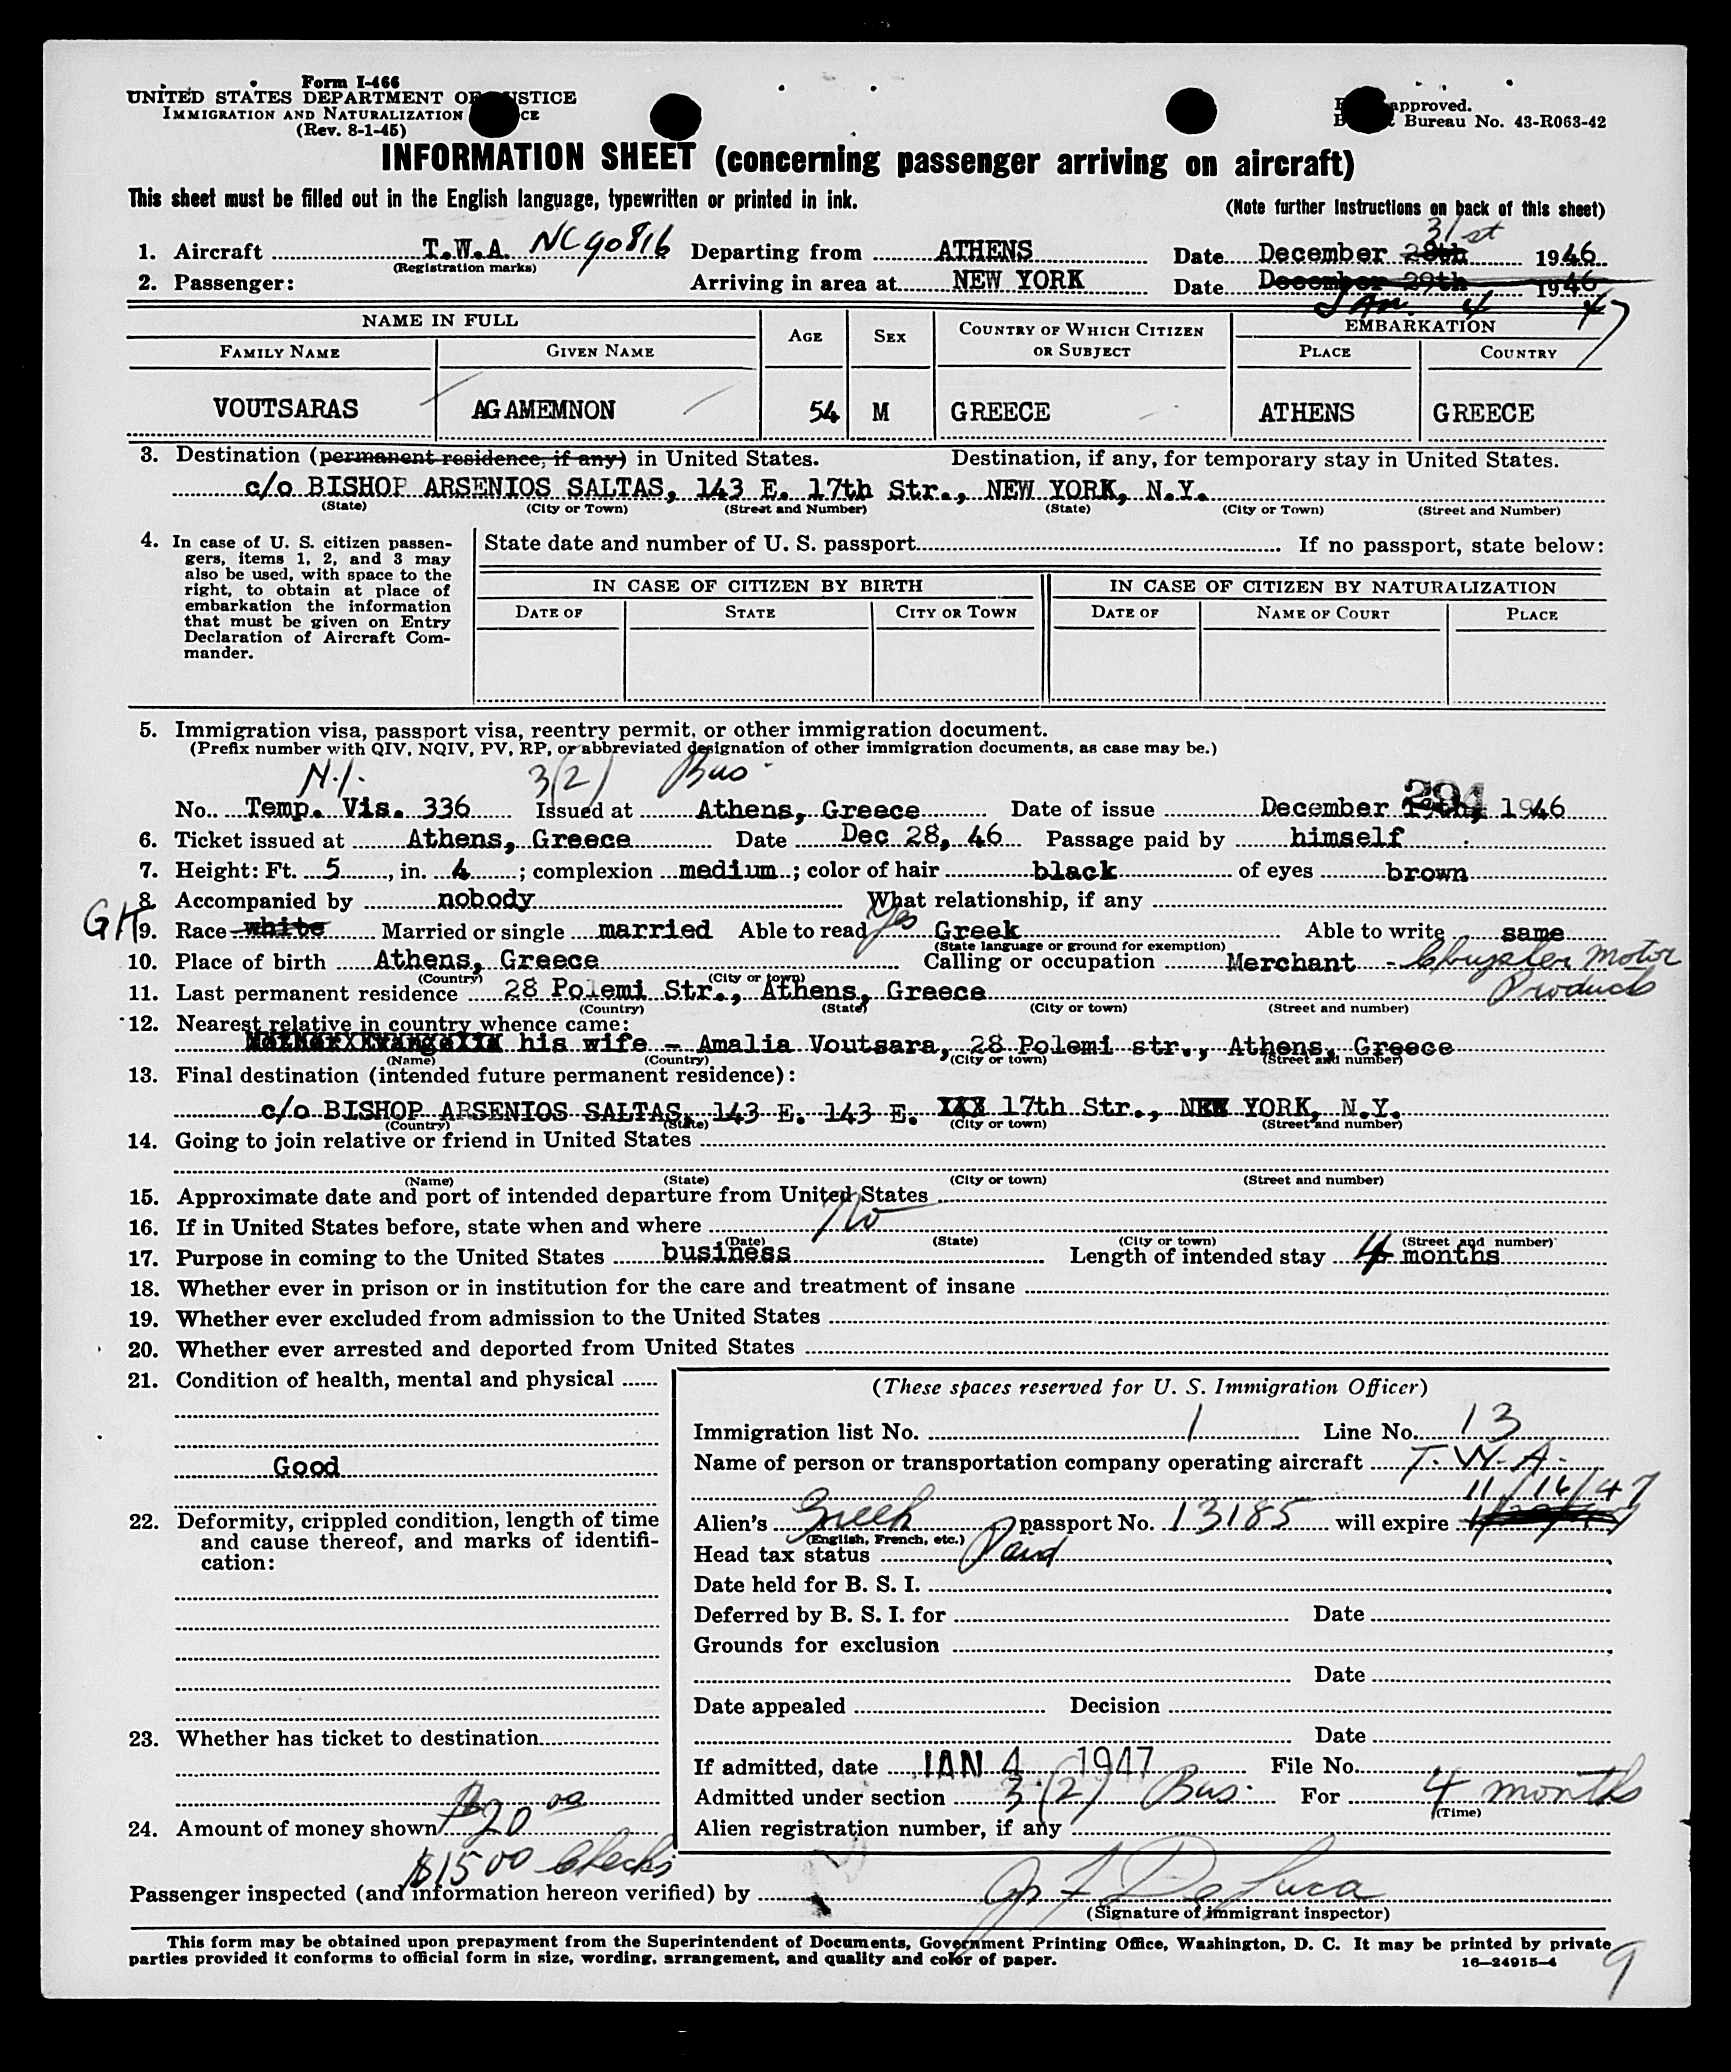 Form I-466
UNITED STATES DEPARTMENT OF JUSTICE
IMMIGRATION AND NATURALIZATION
(Rev. 8-1-45)
approved.
Bureau No. 43-R063-42
INFORMATION SHEET (concerning passenger arriving on aircraft)
This sheet must be filled out in the English language, typewritten or printed in ink.
(Note further instructions on back of this sheet)
31st
1. Aircraft T.W.A. NC90816 Departing from ATHENS Date December 28th 1946
(Registration marks)
2. Passenger: Arriving in area at NEW YORK Date December 29th 1946
JAN. 4 47
NAME IN FULL AGE SEX COUNTRY OF WHICH CITIZEN OR SUBJECT EMBARKATION
FAMILY NAME GIVEN NAME PLACE COUNTRY
VOUTSARAS AGAMEMNON 54 M GREECE ATHENS GREECE
3. Destination (permanent residence, if any) in United States. Destination, if any, for temporary stay in United States.
c/o BISHOP ARSENIOS SALTAS, 143 E. 17th Str., NEW YORK, N.Y.
(State) (City or Town) (Street and Number) (State) (City or Town) (Street and Number)
4. In case of U. S. citizen passen-
gers, items 1, 2, and 3 may
also be used, with space to the
right, to obtain at place of
embarkation the information
that must be given on Entry
Declaration of Aircraft Com-
mander.
State date and number of U. S. passport If no passport, state below:
IN CASE OF CITIZEN BY BIRTH IN CASE OF CITIZEN BY NATURALIZATION
DATE OF STATE CITY OR TOWN DATE OF NAME OF COURT PLACE
5. Immigration visa, passport visa, reentry permit, or other immigration document.
(Prefix number with QIV, NQIV, PV, RP, or abbreviated designation of other immigration documents, as case may be.)
N.I. 3(2) Bus.
No. Temp. Vis. 336 Issued at Athens, Greece Date of issue December 1946
6. Ticket issued at Athens, Greece Date Dec 28, 46 Passage paid by himself
7. Height: Ft. 5, in. 4; complexion medium; color of hair black of eyes brown
8. Accompanied by nobody What relationship, if any
GK 9. Race white Married or single married Able to read yes Greek Able to write same
(State language or ground for exemption)
10. Place of birth Athens, Greece Calling or occupation Merchant - Chrysler Motor
(Country) (City or town) Products
11. Last permanent residence 28 Polemi Str., Athens, Greece
(Country) (State) (City or town) (Street and number)
12. Nearest relative in country whence came:
his wife - Amalia Voutsara, 28 Polemi str., Athens, Greece
(Name) (Country) (City or town) (Street and number)
13. Final destination (intended future permanent residence):
c/o BISHOP ARSENIOS SALTAS, 143 E. 143 E. XXX 17th Str., NEW YORK, N.Y.
(Country) (State) (City or town) (Street and number)
14. Going to join relative or friend in United States
(Name) (State) (City or town) (Street and number)
15. Approximate date and port of intended departure from United States
16. If in United States before, state when and where No
(Date) (State) (City or town) (Street and number)
17. Purpose in coming to the United States business Length of intended stay 4 months
18. Whether ever in prison or in institution for the care and treatment of insane
19. Whether ever excluded from admission to the United States
20. Whether ever arrested and deported from United States
21. Condition of health, mental and physical
Good
22. Deformity, crippled condition, length of time
and cause thereof, and marks of identifi-
cation:
23. Whether has ticket to destination
24. Amount of money shown $20.00
$1500 Checks
(These spaces reserved for U. S. Immigration Officer)
Immigration list No. 1 Line No. 13
Name of person or transportation company operating aircraft T.W.A.
11/16/47
Alien's Greek passport No. 13185 will expire
(English, French, etc.)
Head tax status Paid
Date held for B. S. I.
Deferred by B. S. I. for Date
Grounds for exclusion
Date
Date appealed Decision
Date
If admitted, date JAN 4 1947 File No.
Admitted under section 3(2) Bus. For 4 months
(Time)
Alien registration number, if any
Passenger inspected (and information hereon verified) by De Luca
(Signature of immigrant inspector)
This form may be obtained upon prepayment from the Superintendent of Documents, Government Printing Office, Washington, D. C. It may be printed by private
parties provided it conforms to official form in size, wording, arrangement, and quality and color of paper.
16-24915-4
9